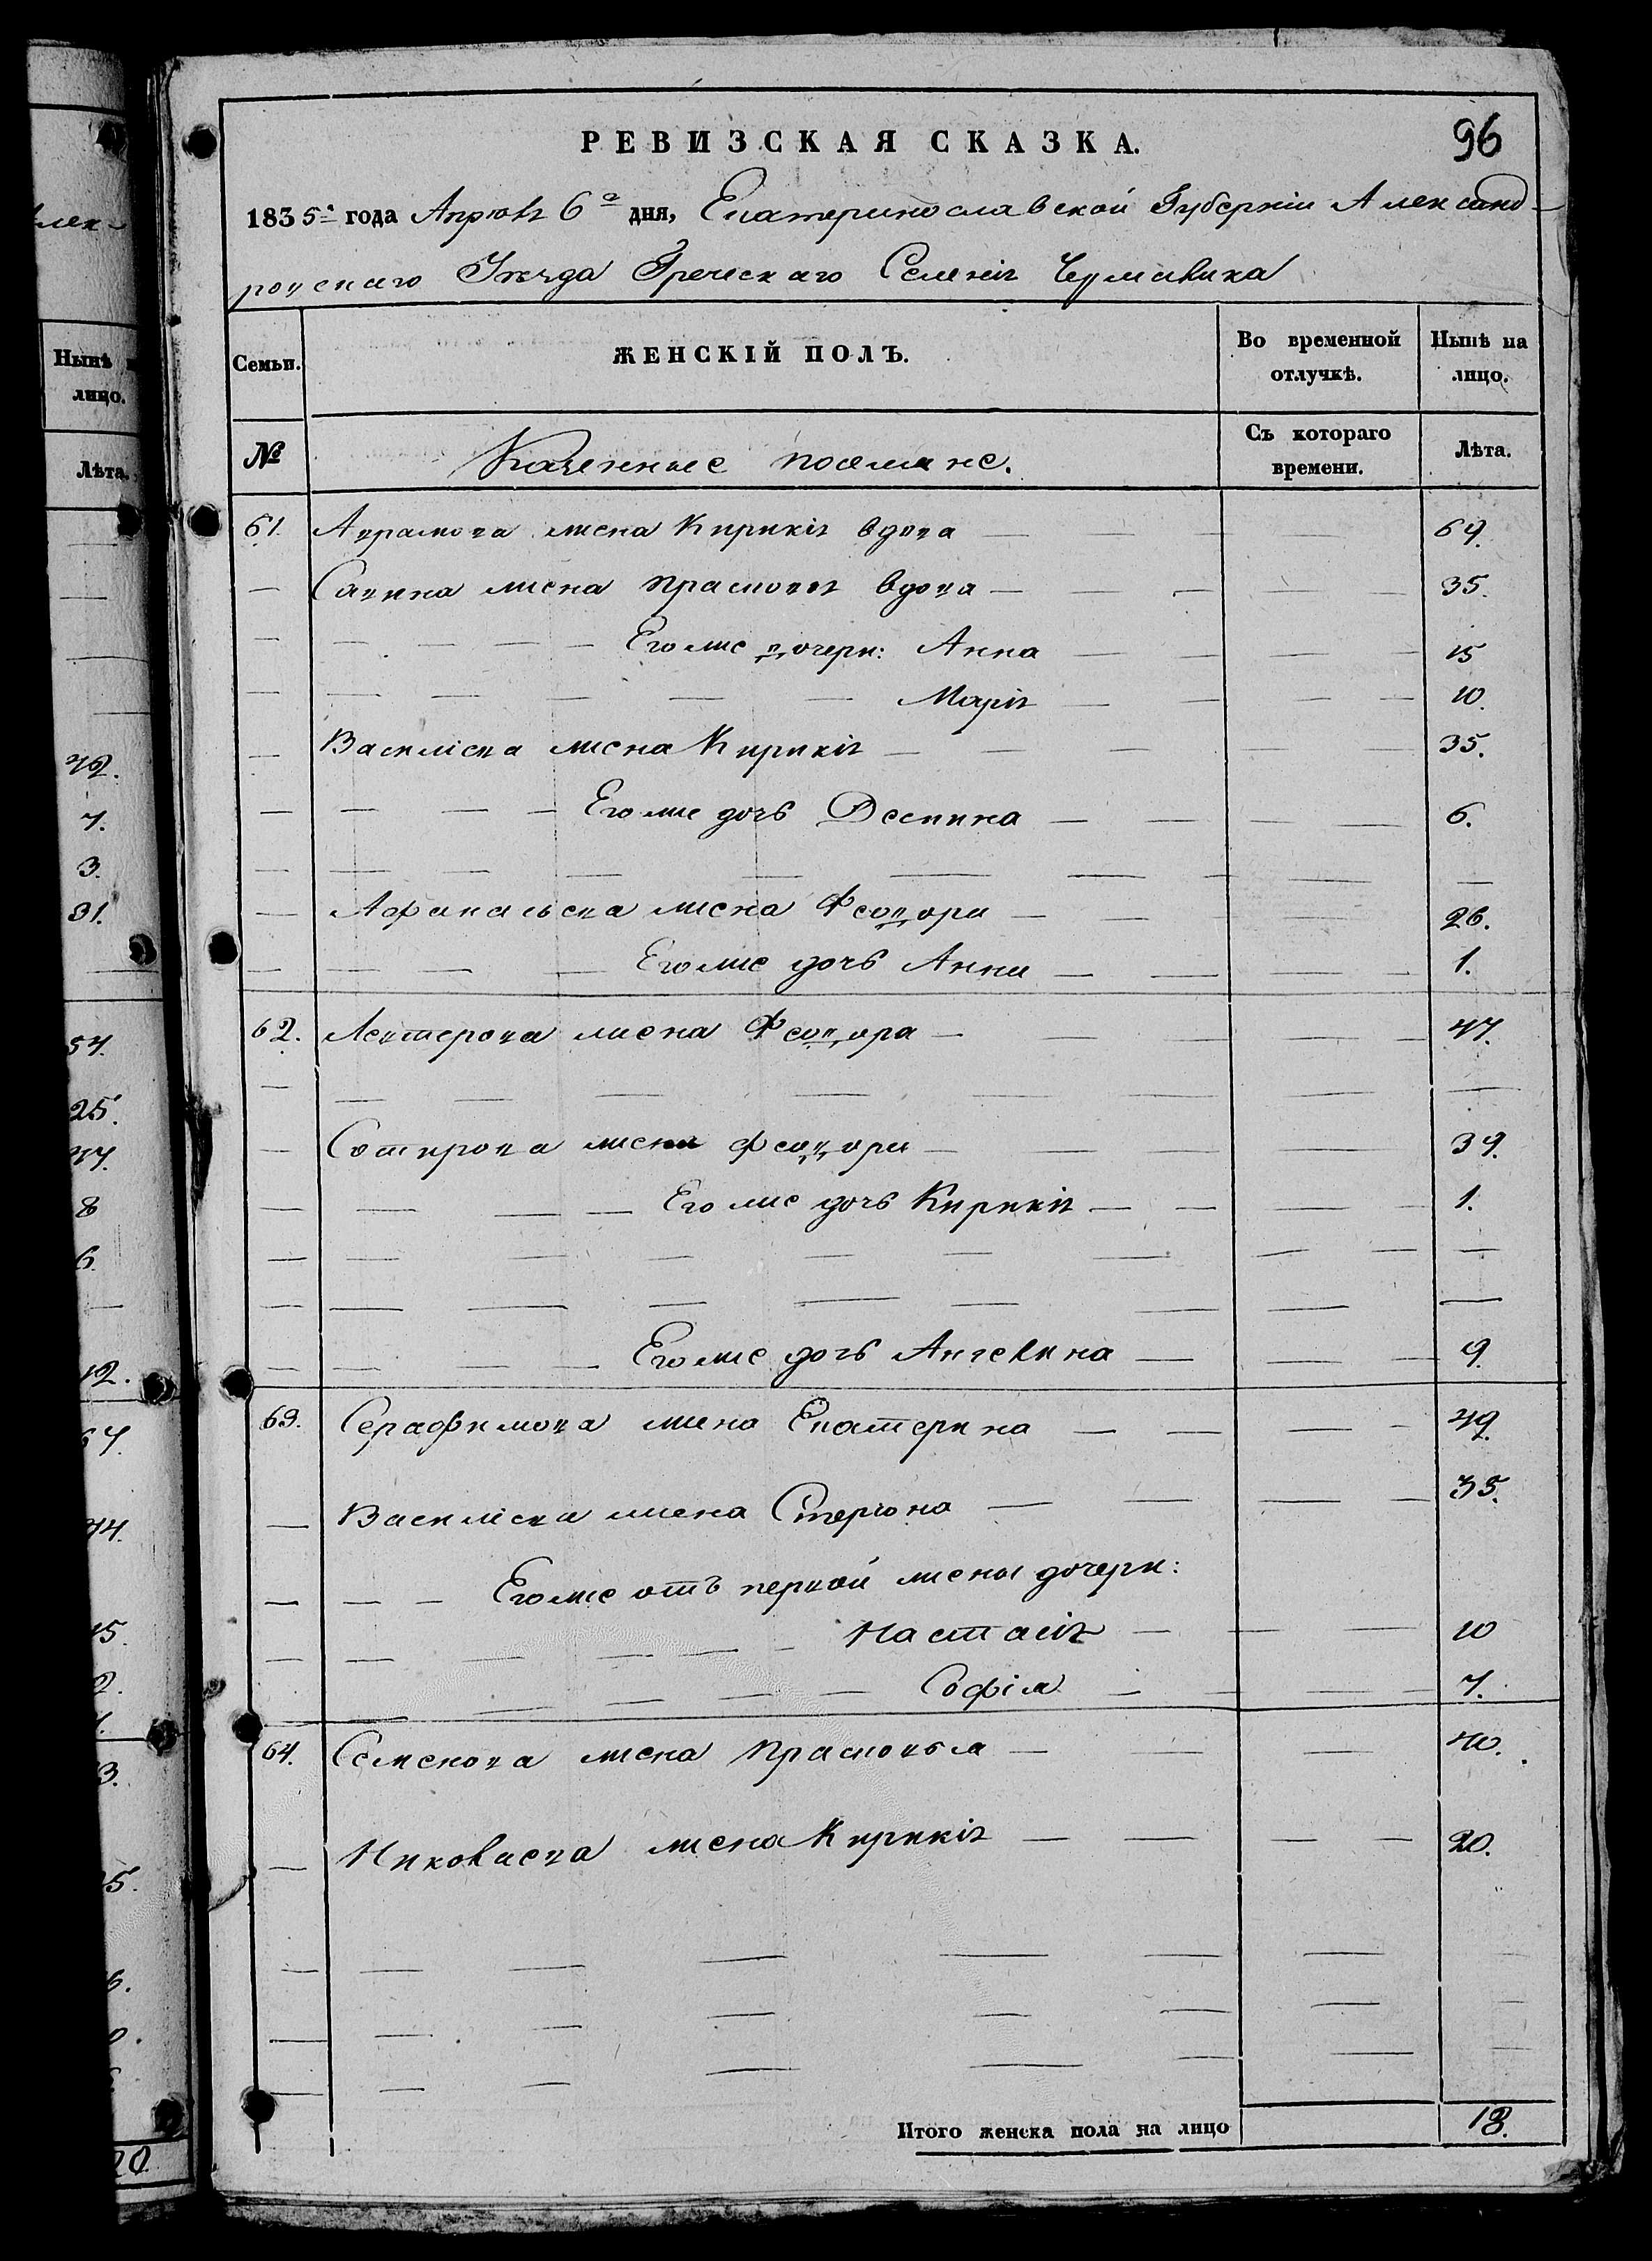 96
РЕВИЗСКАЯ СКАЗКА.
1835го года Апреля 6го дня, Екатеринославской Губерніи Александ-
ровскаго Уѣзда Греческаго Селенія Чермалика
Семьи.
ЖЕНСКІЙ ПОЛЪ.
Во временной отлучкѣ.
Нынѣ на лицо.
№
Казенные поселяне.
Съ котораго времени.
Лѣта.
61. Аврамова жена Кирикія вдова — 69.
— Савина жена Прасковія вдова — 35.
— Его же дочери: Анна — 15
— Марія — 10.
— Василіева жена Кирикія — 35.
— Его же дочь Деспина — 6.
— Афанасьева жена Феодора — 26.
— Его же дочь Анна — 1.
62. Лефтерова жена Феодора — 47.
— Сотирова жена Феодора — 39.
— Его же дочь Кирикія — 1.
— Его же дочь Ангелина — 9.
63. Серафимова жена Екатерина — 49.
— Василіева жена Стеріона — 35.
— Его же отъ первой жены дочери:
— Настасія — 10
— Софія — 7.
64. Семенова жена Прасковья — 40.
— Николаева жена Кирикія — 20.
Итого женска пола на лицо 18.
Нынѣ
лицо.
Лѣта.